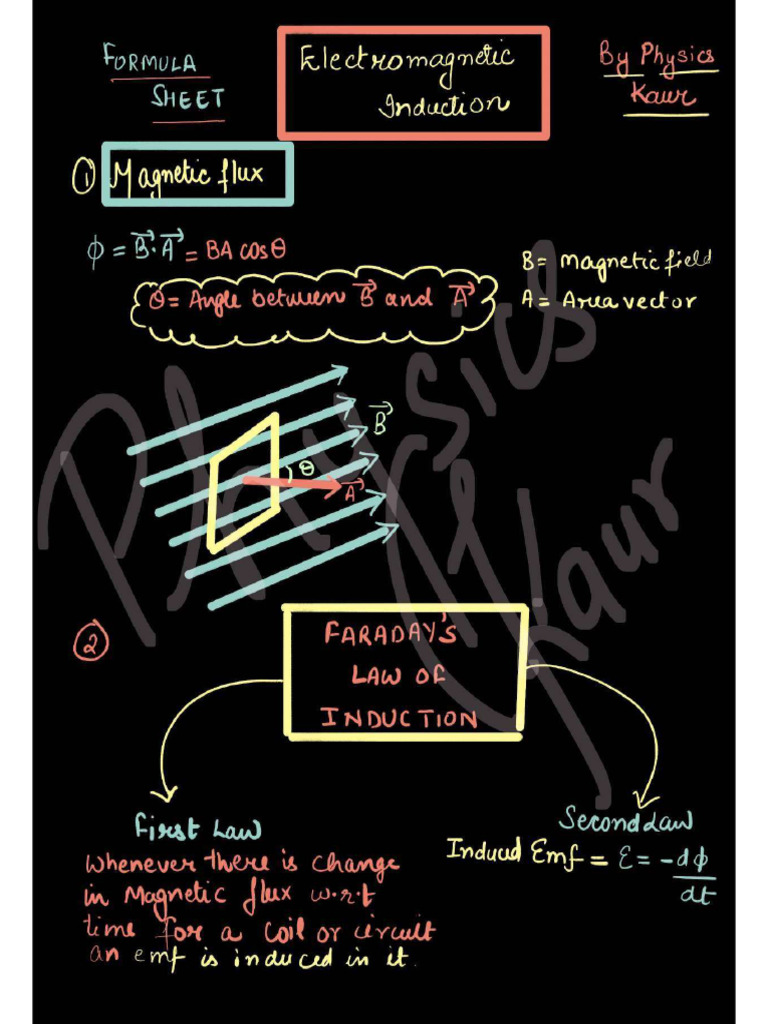 FORMULA
SHEET
Electromagnetic
Induction
By Physics
Kaur
① Magnetic flux
ϕ = B⃗·A⃗ = BA cosθ
θ = Angle between B⃗ and A⃗
B = Magnetic field
A = Area vector
B⃗
θ
A⃗
Physics
Kaur
②
FARADAY'S
LAW OF
INDUCTION
First Law
Whenever there is change
in Magnetic flux w.r.t
time for a coil or circuit
an emf is induced in it.
Second Law
Induced Emf = ε = -dϕ/dt